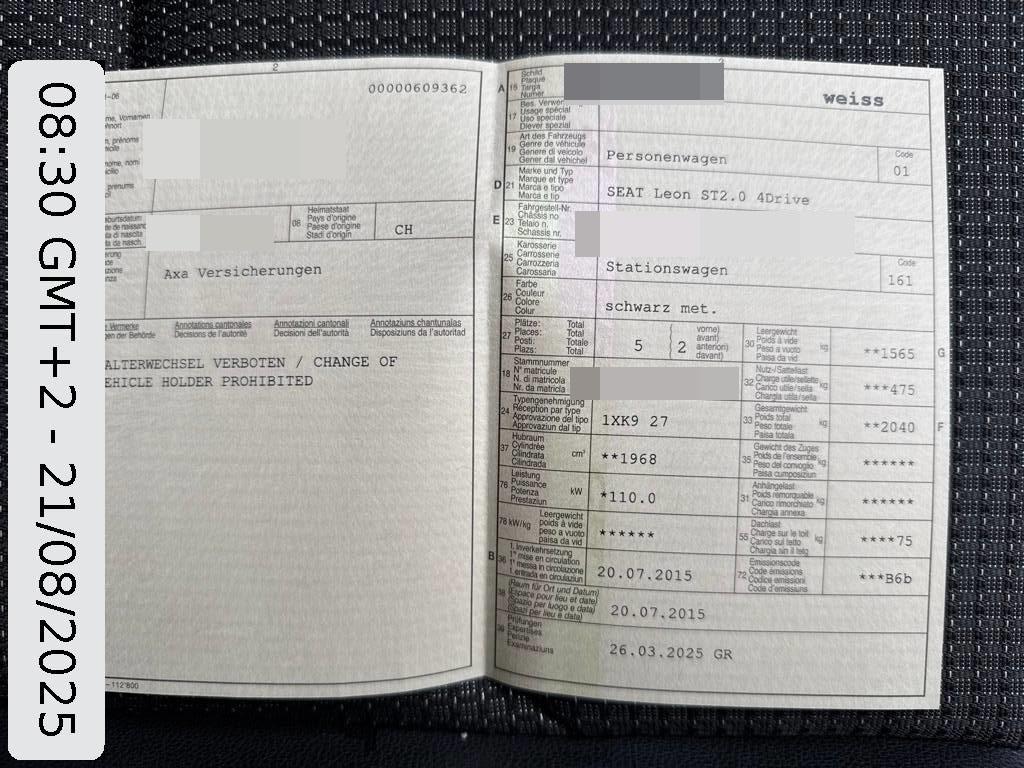 08:30 GMT+2 - 21/08/2025
2
00000609362
-06
me, Vornamen
hnort
m, prénoms
icile
nome, nomi
icilio
prenums
cil
burtsdatum
te de naissance
ta di nascita
ta da nasch.
08
Heimatstaat
Pays d'origine
Paese d'origine
Stadi d'origin
CH
Axa Versicherungen
Vermerke
en der Behörde
Annotations cantonales
Décisions de l'autorité
Annotazioni cantonali
Decisioni dell'autorità
Annotaziuns chantunalas
Disposiziuns da l'autoritad
ALTERWECHSEL VERBOTEN / CHANGE OF
EHICLE HOLDER PROHIBITED
112'800
A 15
Schild
Plaque
Targa
Numer
weiss
17
Bes. Verwen
Usage spécial
Uso speciale
Diever spezial
19
Art des Fahrzeugs
Genre de véhicule
Genere di veicolo
Gener dal vehichel
Personenwagen
Code
01
D 21
Marke und Typ
Marque et type
Marca e tipo
Marca e tip
SEAT Leon ST2.0 4Drive
E 23
Fahrgestell-Nr.
Châssis no
Telaio n.
Schassis nr.
25
Karosserie
Carrosserie
Carrozzeria
Carossaria
Stationswagen
Code
161
26
Farbe
Couleur
Colore
Colur
schwarz met.
27
Plätze: Total
Places: Total
Posti: Totale
Plazs: Total
5
2
vorne)
avant)
anteriori)
davant)
30
Leergewicht
Poids à vide
Peso a vuoto
Paisa da vid
kg
**1565
G
18
Stammnummer
N° matricule
N. di matricola
Nr. da matricla
32
Nutz-/Sattellast
Charge utile/sellette
Carico utile/sella
Chargia utila/sella
kg
***475
24
Typengenehmigung
Réception par type
Approvazione del tipo
Approvaziun dal tip
1XK9 27
33
Gesamtgewicht
Poids total
Peso totale
Paisa totala
kg
**2040
F
37
Hubraum
Cylindrée
Cilindrata
Cilindrada
cm³
**1968
35
Gewicht des Zuges
Poids de l'ensemble
Peso del convoglio
Paisa cumposiziun
kg
******
76
Leistung
Puissance
Potenza
Prestaziun
kW
*110.0
31
Anhängelast
Poids remorquable
Carico rimorchiato
Chargia annexa
kg
******
78 kW/kg
Leergewicht
poids à vide
peso a vuoto
paisa da vid
******
55
Dachlast
Charge sur le toit
Carico sul tetto
Chargia sin il tetg
kg
****75
B 36
1. Inverkehrsetzung
1re mise en circulation
1a messa in circolazione
1. entrada en circulaziun
20.07.2015
72
Emissionscode
Code émissions
Codice emissioni
Code d'emissiuns
***B6b
38
(Raum für Ort und Datum)
(Espace pour lieu et date)
(Spazio per luogo e data)
(Spazi per lieu e data)
20.07.2015
39
Prüfungen
Expertises
Perizie
Examinaziuns
26.03.2025 GR